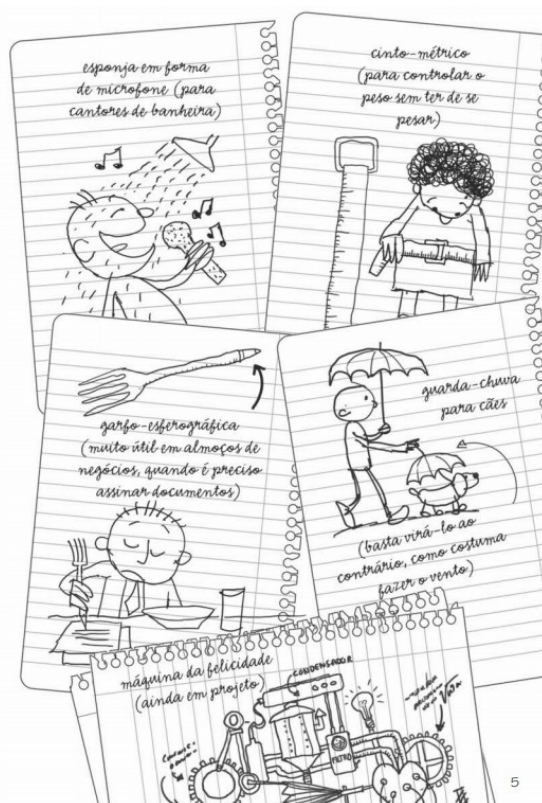 esponja em forma
de microfone (para
cantores de banheira)
cinto-métrico
(para controlar o
peso sem ter de se
pesar)
garfo-esferográfica
(muito útil em almoços de
negócios, quando é preciso
assinar documentos)
guarda-chuva
para cães
(basta virá-lo ao
contrário, como costuma
fazer o vento)
máquina da felicidade
(ainda em projeto)
CONDENSADOR
FILTRO
5